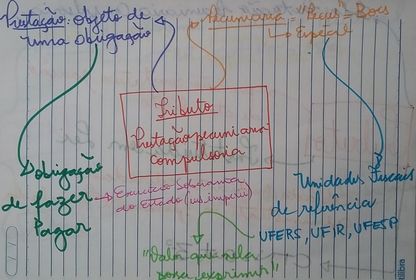 Prestação: objeto de
uma obrigação
Pecuniária = "Pecus" = Bois
Espécie
Tributo
Prestação pecuniária
compulsória
obrigação
de fazer
Pagar
Exercício Soberania
do Estado (ius imperii)
Unidades Fiscais
de referência
UFERS, UFIR, UFESP
"Valor que nela
possa exprimir"